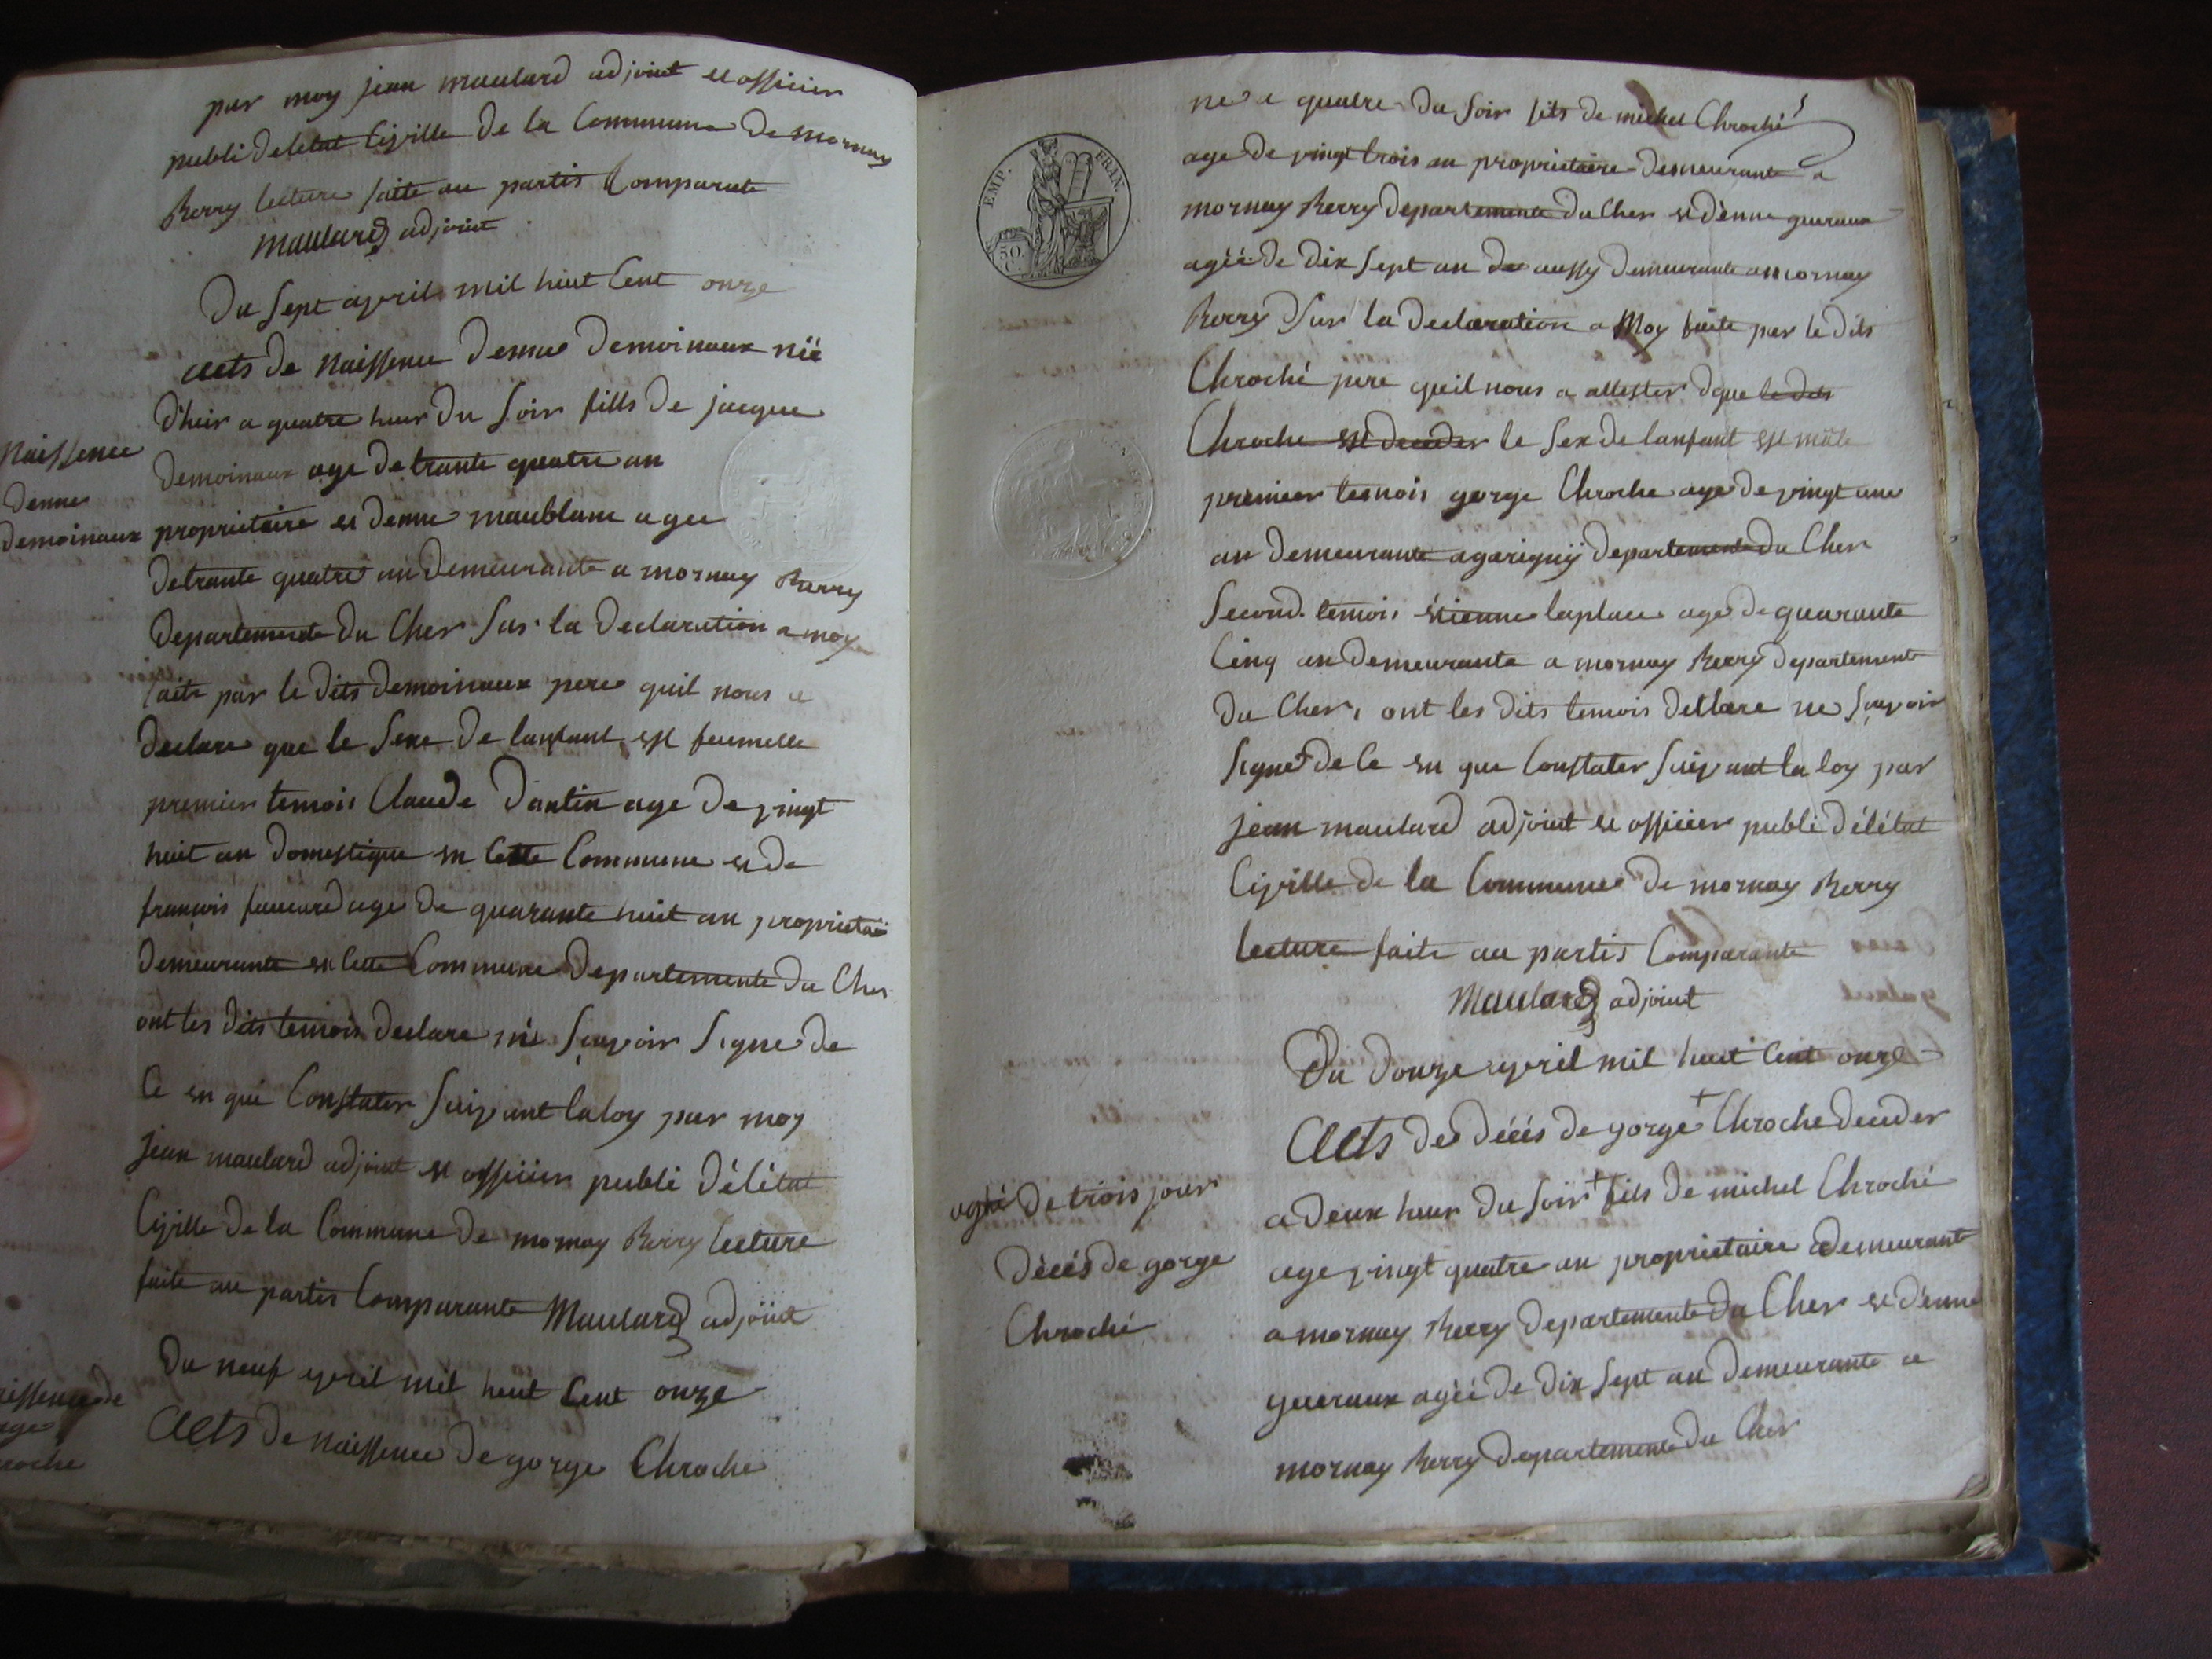 par moy jean maulard adjoint et officier
publi deletat Civille de la Commune de mornay
Berry lecture faite au partis Comparate
Maulard adjoint
Du Sept avril mil huit Cent onze
acts de Naissence denne demoinaux néé
d'heir a quatre heur du Soir fills de jacque
demoinaux age de trante quatre an
Naissence
denne
demoinaux
proprietaire et denne maublanc agee
de trante quatre an demeurante a mornay Berry
departemente du Cher Sur la declaration a moy
faite par le dits demoinaux pere quil nous a
declare que le Sexe de lanfant est feumelle
premier temois Claude dantin age de vingt
huit an domestique en Cette Commune et de
francois faucard age de quarante huit an proprietai
demeurante en Cette Commune departemente du Cher
ont les dits temois declare né Scavoir Signe de
Ce en qui Constater Suivant la loy par moy
jean maulard adjoint et officier publi délétat
Civille de la Commune de mornay Berry lecture
faite au partis Comparante Maulard adjoint
Du neuf avril mil heut Cent onze
aissence de
rge
roche
Acts de naissence de gorge Chroche
EMP. FRAN.
50 C.
ne a quatre du Soir fils de michel Chroché
age de vingt trois an proprietaire demeurante a
mornay Berry departemente du Cher et dénne gueraux
agéé de dix Sept an de aussy demeurante a mornay
Berry Sur la declaration a Moy faite par le dits
Chroché pere queil nous a attester que le dits
Chroche est deceder le Sex de lanfant est mâle
premier temois gorge Chroche age de vingt une
an demeurante a garigny departemente du Cher
Second temois étienne laplace age de quarante
Cinq an demeurante a mornay Berry departemente
du Cher, ont les dits temois dellare ne Scavoir
Signe de Ce en que Constater Suivant la loy par
jean maulard adjoint et officier publi délétat
Civille de la Commune de mornay Berry
lecture faite au partis Comparante
Maulard adjoint
Du douze avril mil huit Cent onze
Acts de décés de gorge + Chroche deceder
agéé de trois jour
a deux heur du Soir + fils de michel Chroché
décés de gorge
Chroché
age vingt quatre an proprietaire demeurant
a mornay Berry departemente du Cher et d'enne
gueraux agéé de dix Sept an demeurante a
mornay Berry departemente du Cher